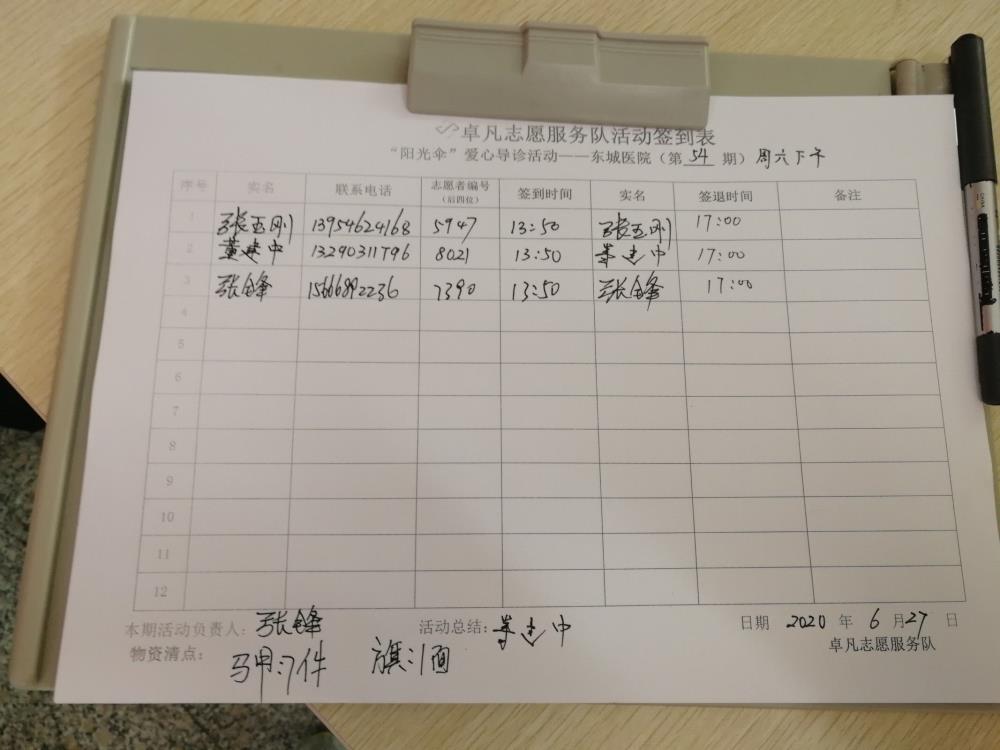 卓凡志愿服务队活动签到表
“阳光伞”爱心导诊活动——东城医院（第 54 期）周六下午
序号 实名 联系电话 志愿者编号（后四位） 签到时间 实名 签退时间 备注
1 张玉刚 13954624168 5947 13:50 张玉刚 17:00
2 董建中 13290311796 8021 13:50 董建中 17:00
3 张锋 15666892236 7390 13:50 张锋 17:00
4
5
6
7
8
9
10
11
12
本期活动负责人：张锋 活动总结：董建中 日期 2020 年 6 月 27 日
物资清点： 马甲:7件 旗:1面 卓凡志愿服务队